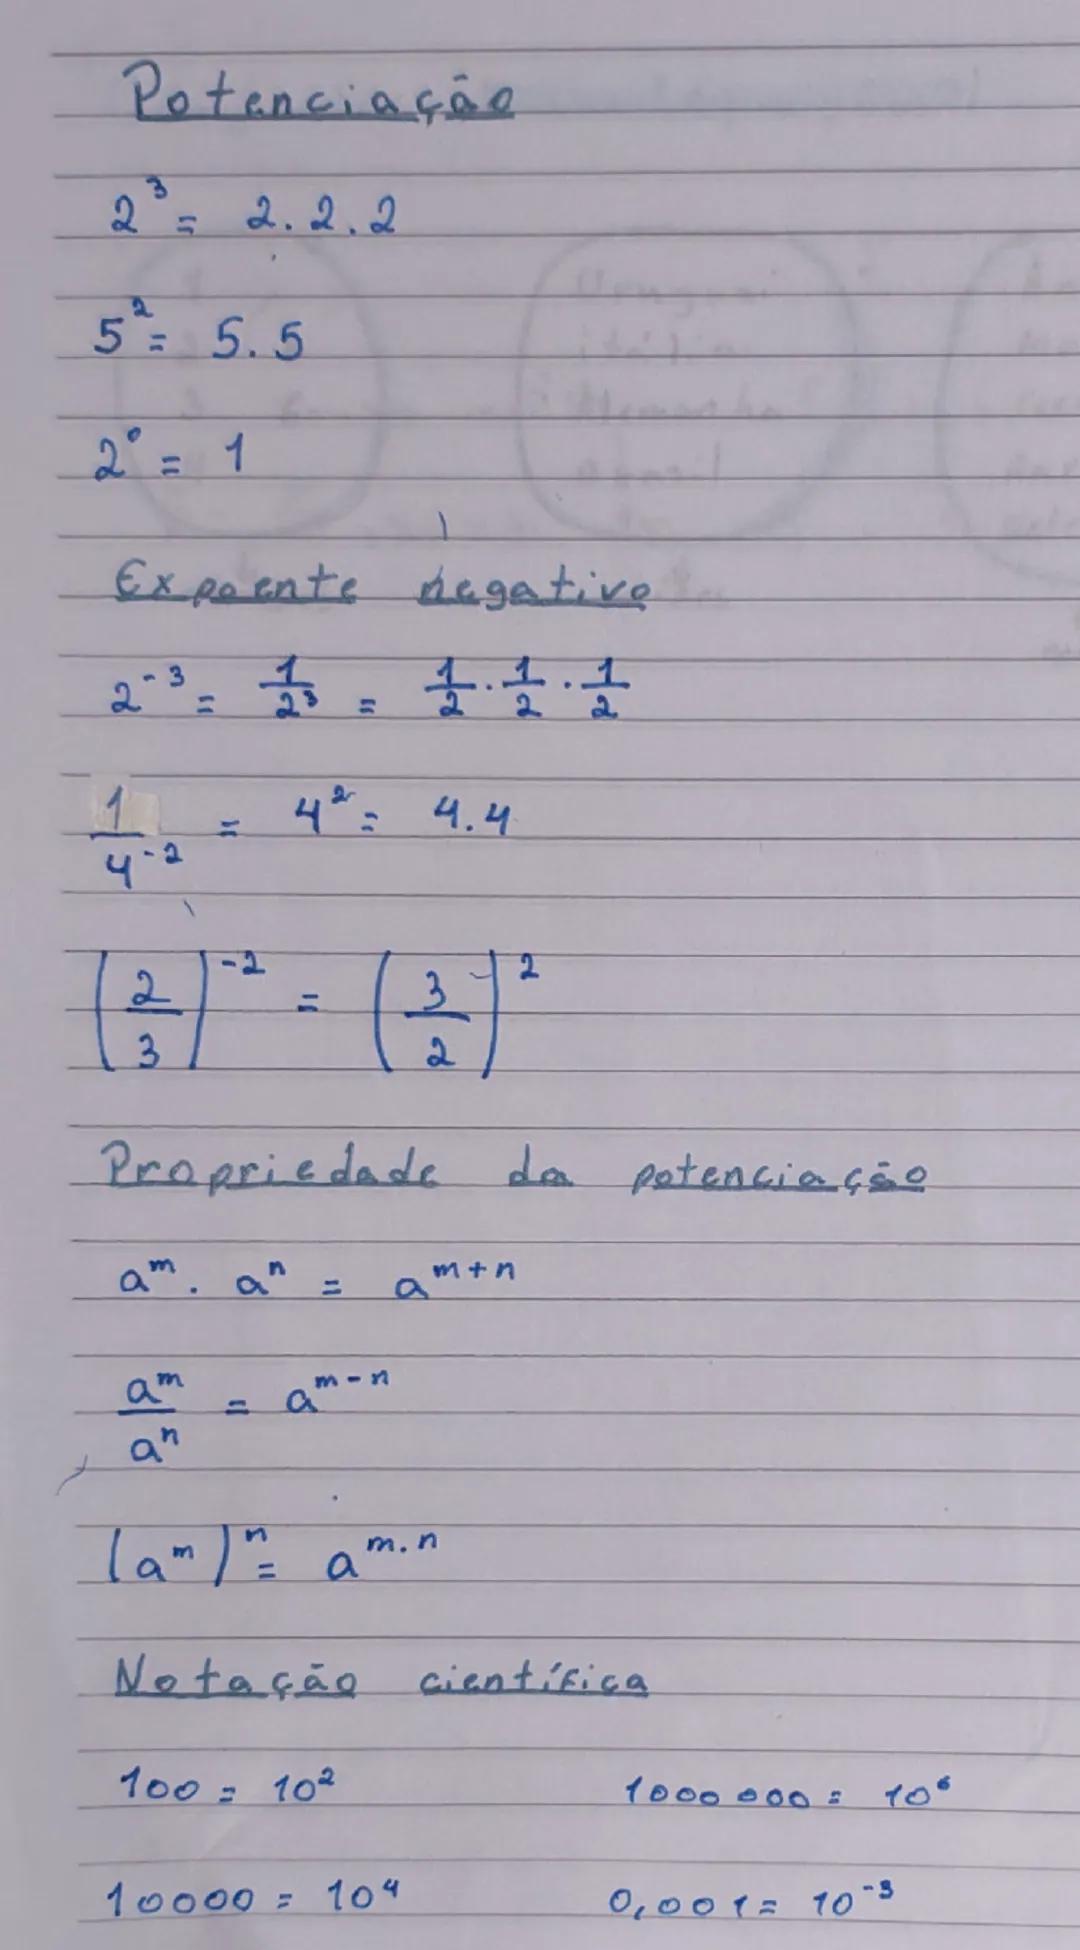 Potenciação
2³ = 2.2.2
5² = 5.5
2⁰ = 1
Expoente negativo
2⁻³ = 1/2³ = 1/2 . 1/2 . 1/2
1/4⁻² = 4² = 4.4
(2/3)⁻² = (3/2)²
Propriedade da potenciação
aᵐ . aⁿ = aᵐ⁺ⁿ
aᵐ/aⁿ = aᵐ⁻ⁿ
(aᵐ)ⁿ = a^m.n
Notação científica
100 = 10² 1000 000 = 10⁶
10000 = 10⁴ 0,001 = 10⁻³